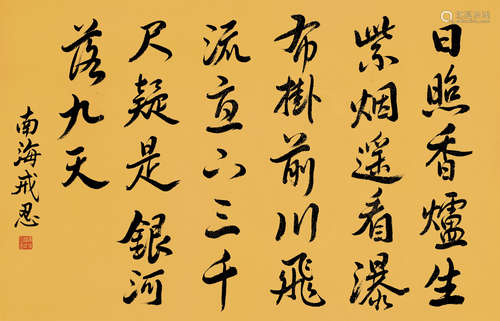 日照香爐生
紫烟遥看瀑
布掛前川飛
流直下三千
尺疑是銀河
落九天
南海戒忍